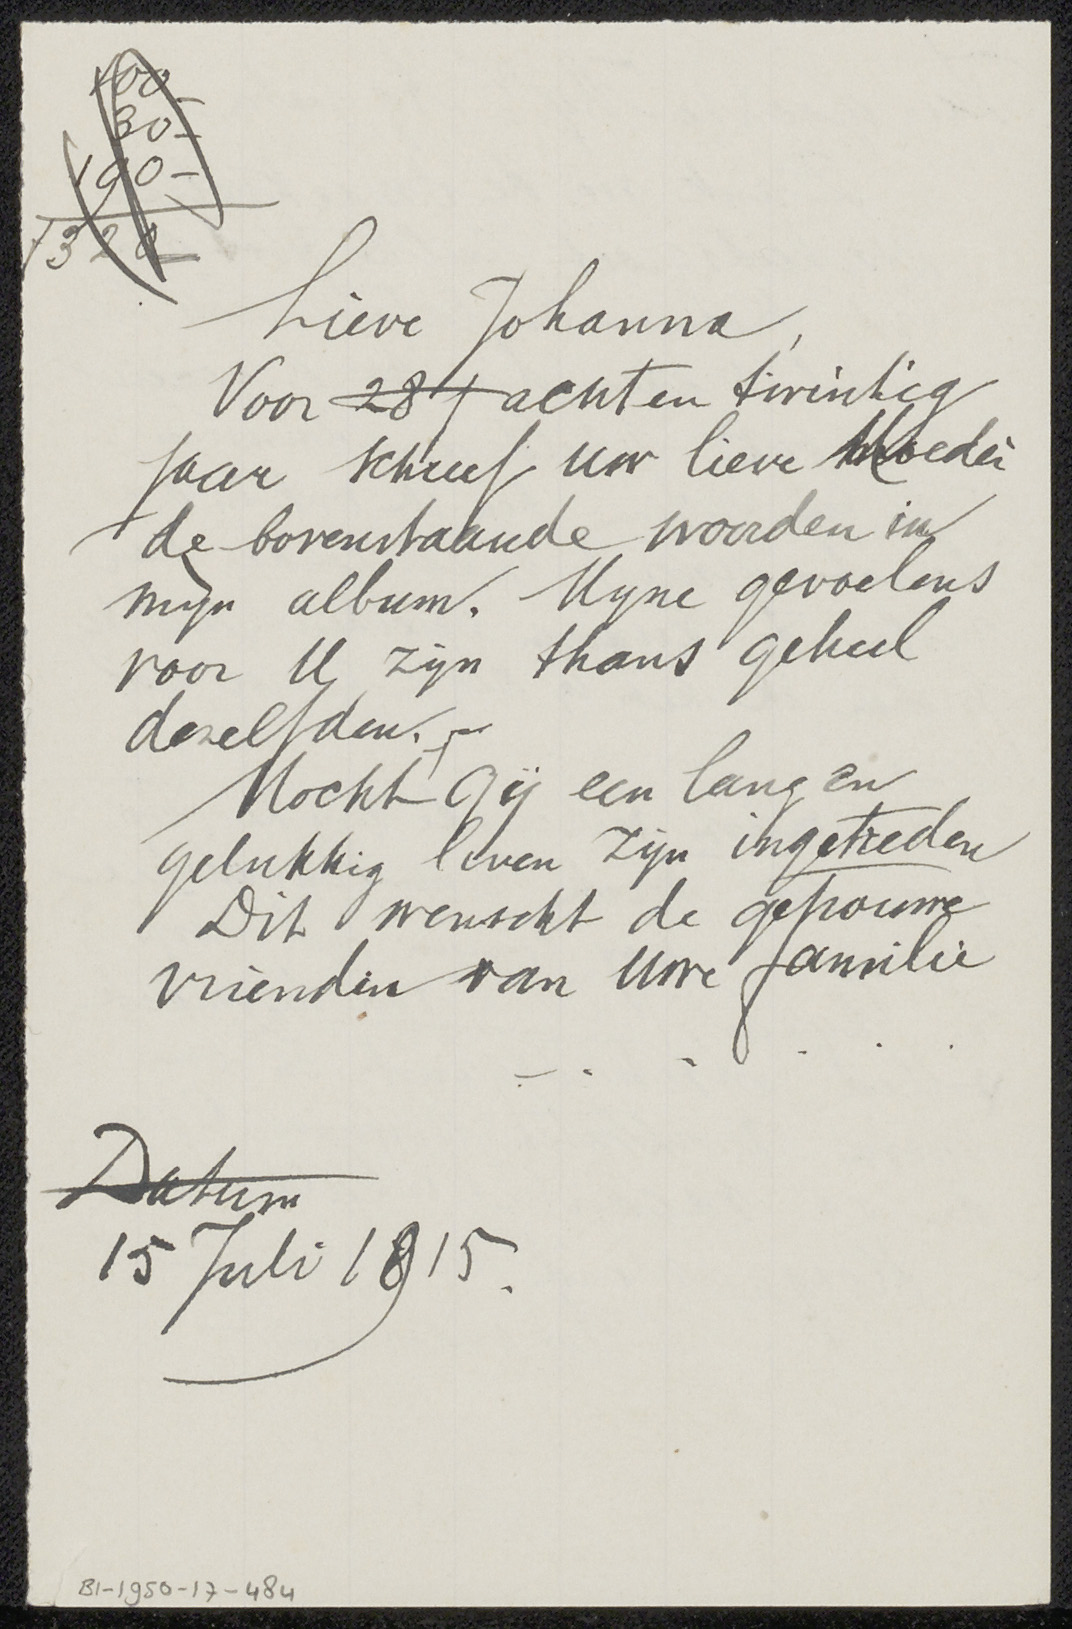 100
30-
190-
1320
Lieve Johanna,
Voor 28 j acht en twintig
jaar schreef uw lieve Moeder
de bovenstaande woorden in
mijn album. Myne gevoelens
voor U zijn thans geheel
dezelfden.
Mocht Gij een lang en
gelukkig leven zijn ingetreden
Dit wenscht de getrouwe
vriendin van Uwe familie
Datum
15 Juli 1915.
BI-1950-17-484